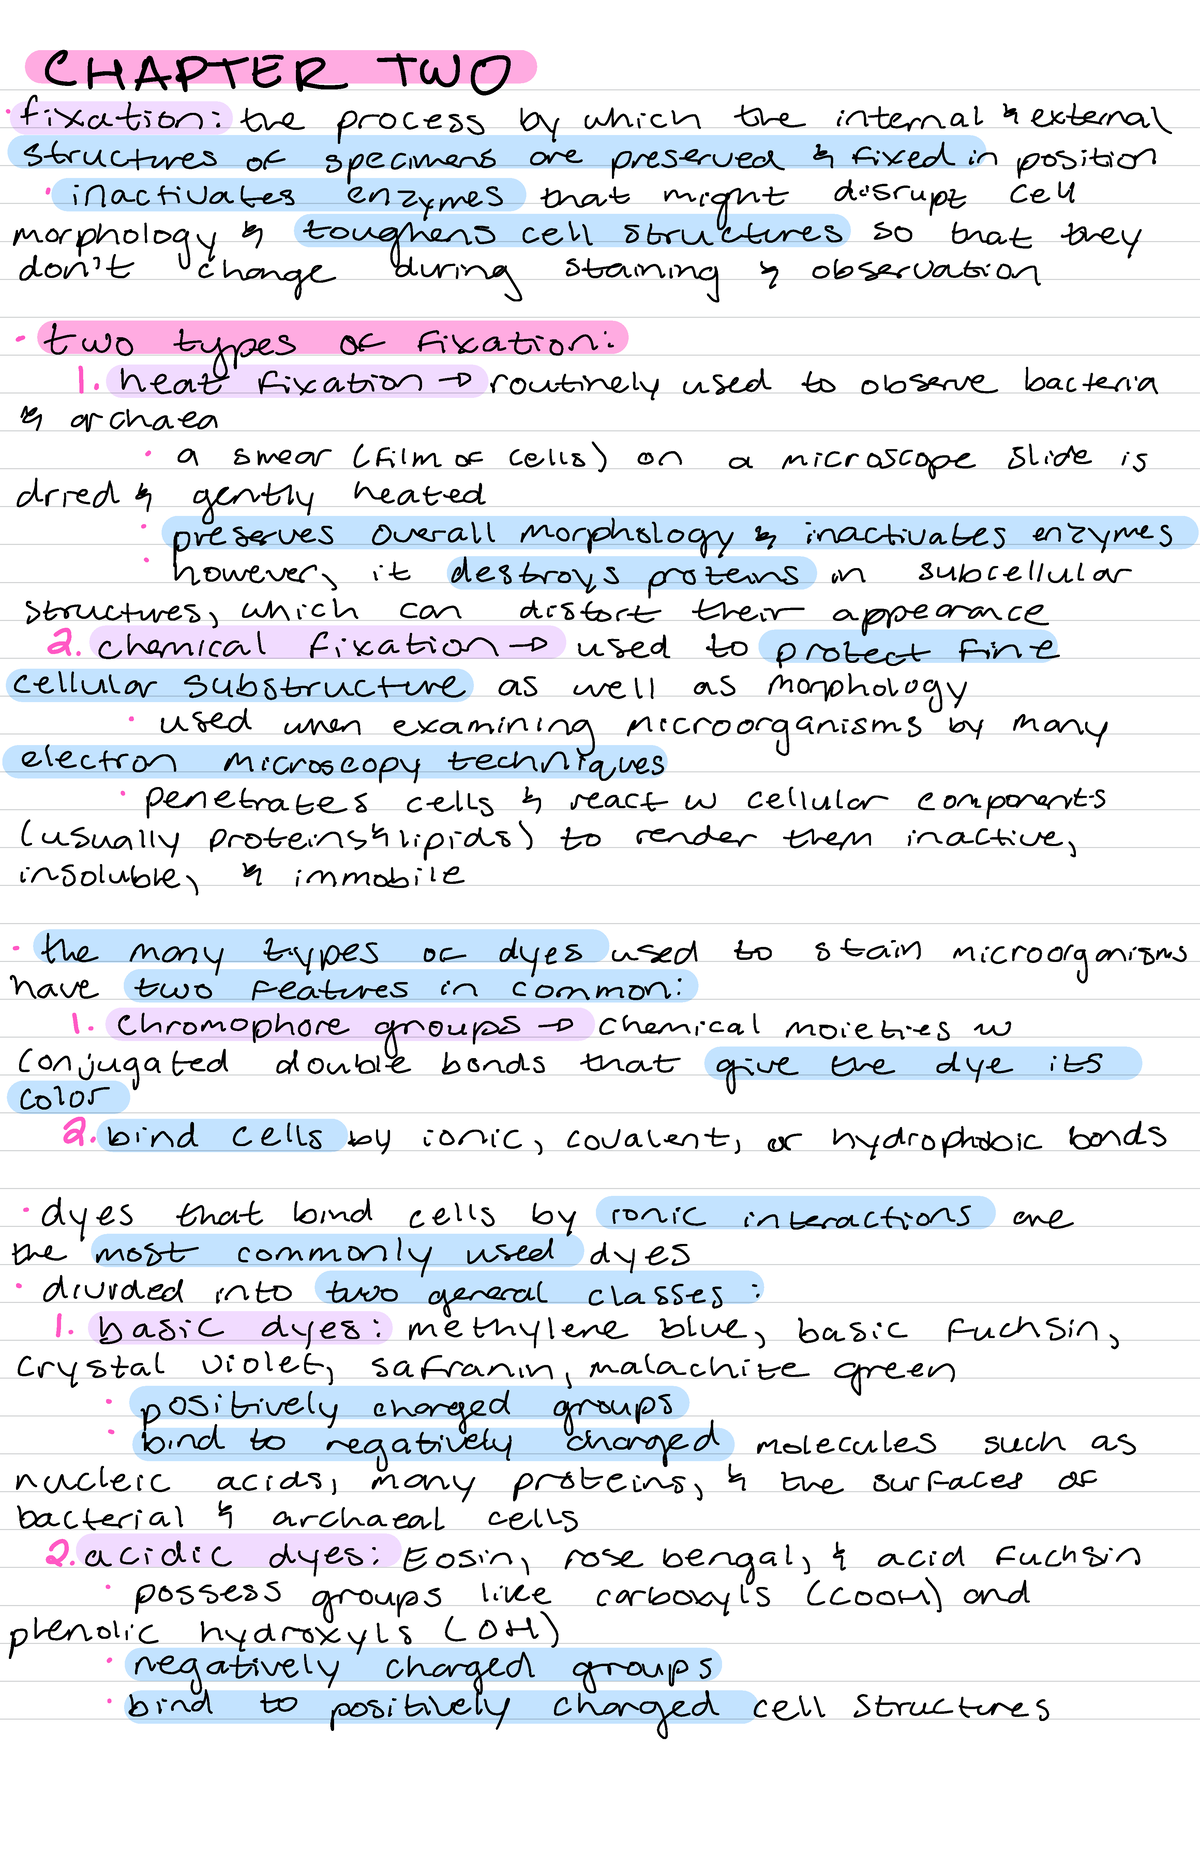 CHAPTER TWO
· fixation: the process by which the internal & external
structures of specimens are preserved & fixed in position
· inactivates enzymes that might disrupt cell
morphology & toughens cell structures so that they
don't change during staining & observation
· two types of fixation:
1. heat fixation → routinely used to observe bacteria
& archaea
· a smear (film of cells) on a microscope slide is
dried & gently heated
· preserves overall morphology & inactivates enzymes
· however, it destroys proteins in subcellular
structures, which can distort their appearance
2. chemical fixation → used to protect fine
cellular substructure as well as morphology
· used when examining microorganisms by many
electron microscopy techniques
· penetrates cells & react w cellular components
(usually proteins & lipids) to render them inactive,
insoluble, & immobile
· the many types of dyes used to stain microorganisms
have two features in common:
1. Chromophore groups → chemical moieties w
conjugated double bonds that give the dye its
color
2. bind cells by ionic, covalent, or hydrophobic bonds
· dyes that bind cells by ionic interactions are
the most commonly used dyes
· divided into two general classes:
1. basic dyes: methylene blue, basic fuchsin,
crystal violet, safranin, malachite green
· positively charged groups
· bind to negatively charged molecules such as
nucleic acids, many proteins, & the surfaces of
bacterial & archaeal cells
2. acidic dyes: Eosin, rose bengal, & acid fuchsin
· possess groups like carboxyls (COOH) and
phenolic hydroxyls (OH)
· negatively charged groups
· bind to positively charged cell structures